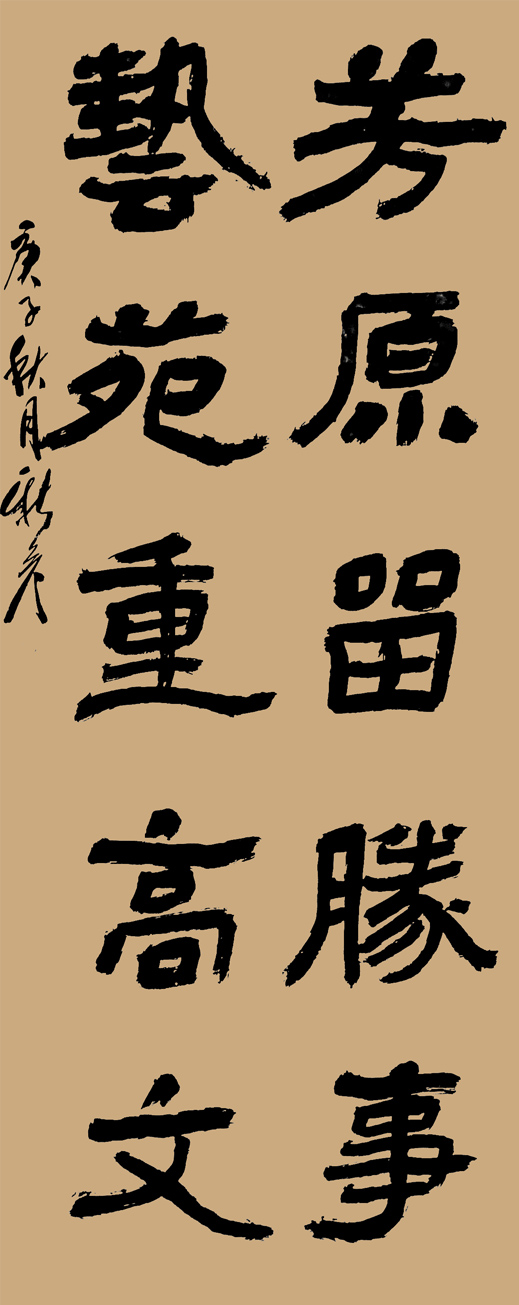 芳原留勝事
藝苑重高文
庚子秋月